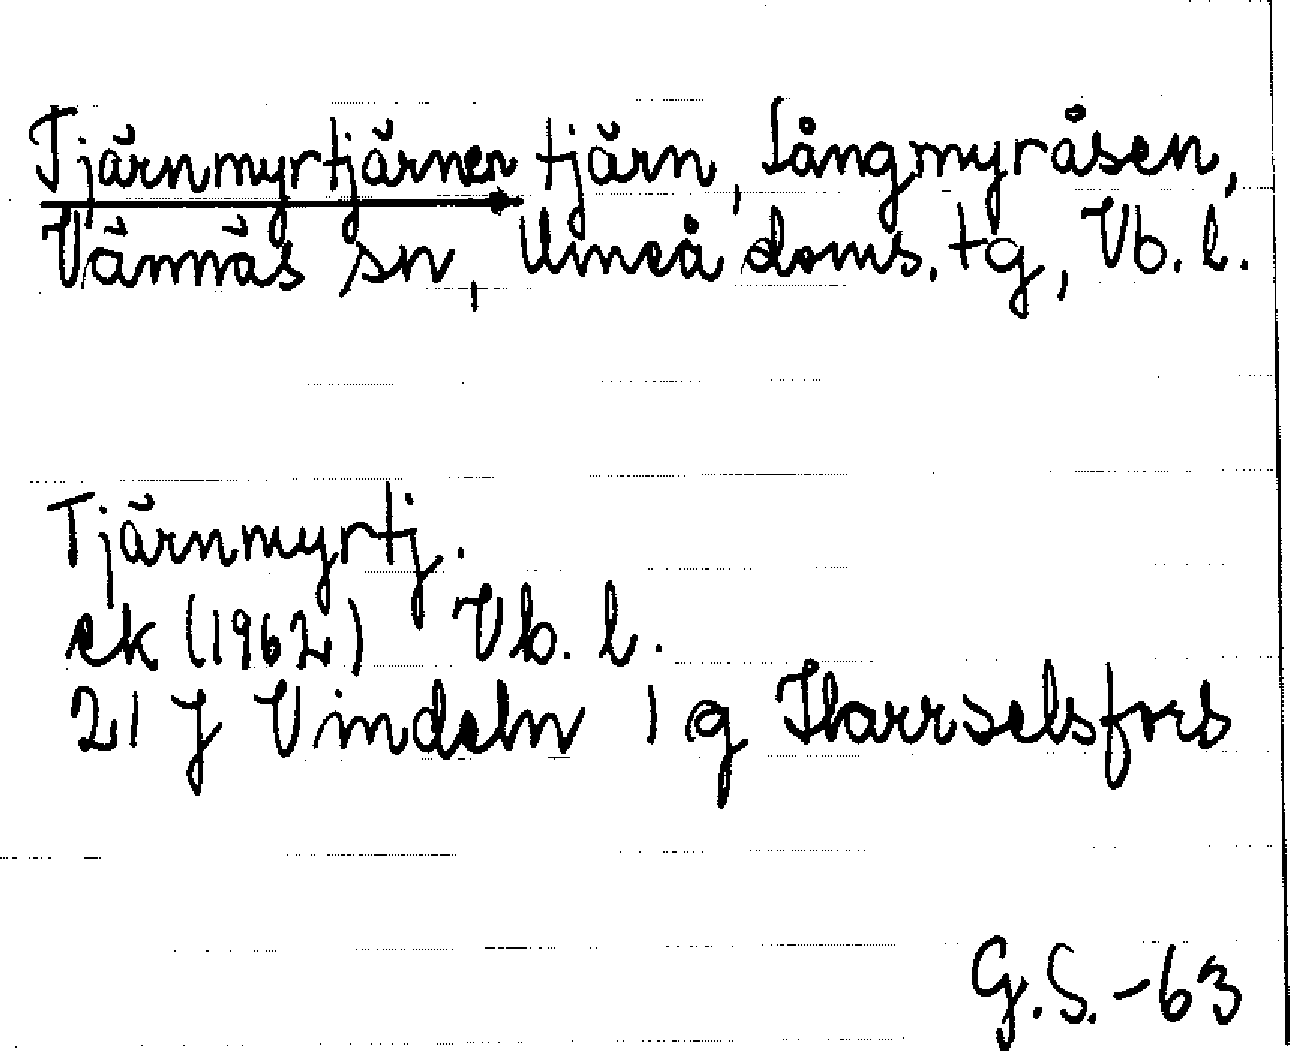 Tjärnmyrtjärnen tjärn, Långmyråsen,
Vännäs sn, Umeå doms. tg, Vb. l.
Tjärnmyrtj.
ek (1962) Vb. l.
21 J Vindeln 1 g Harrselsfors
G.S.-63